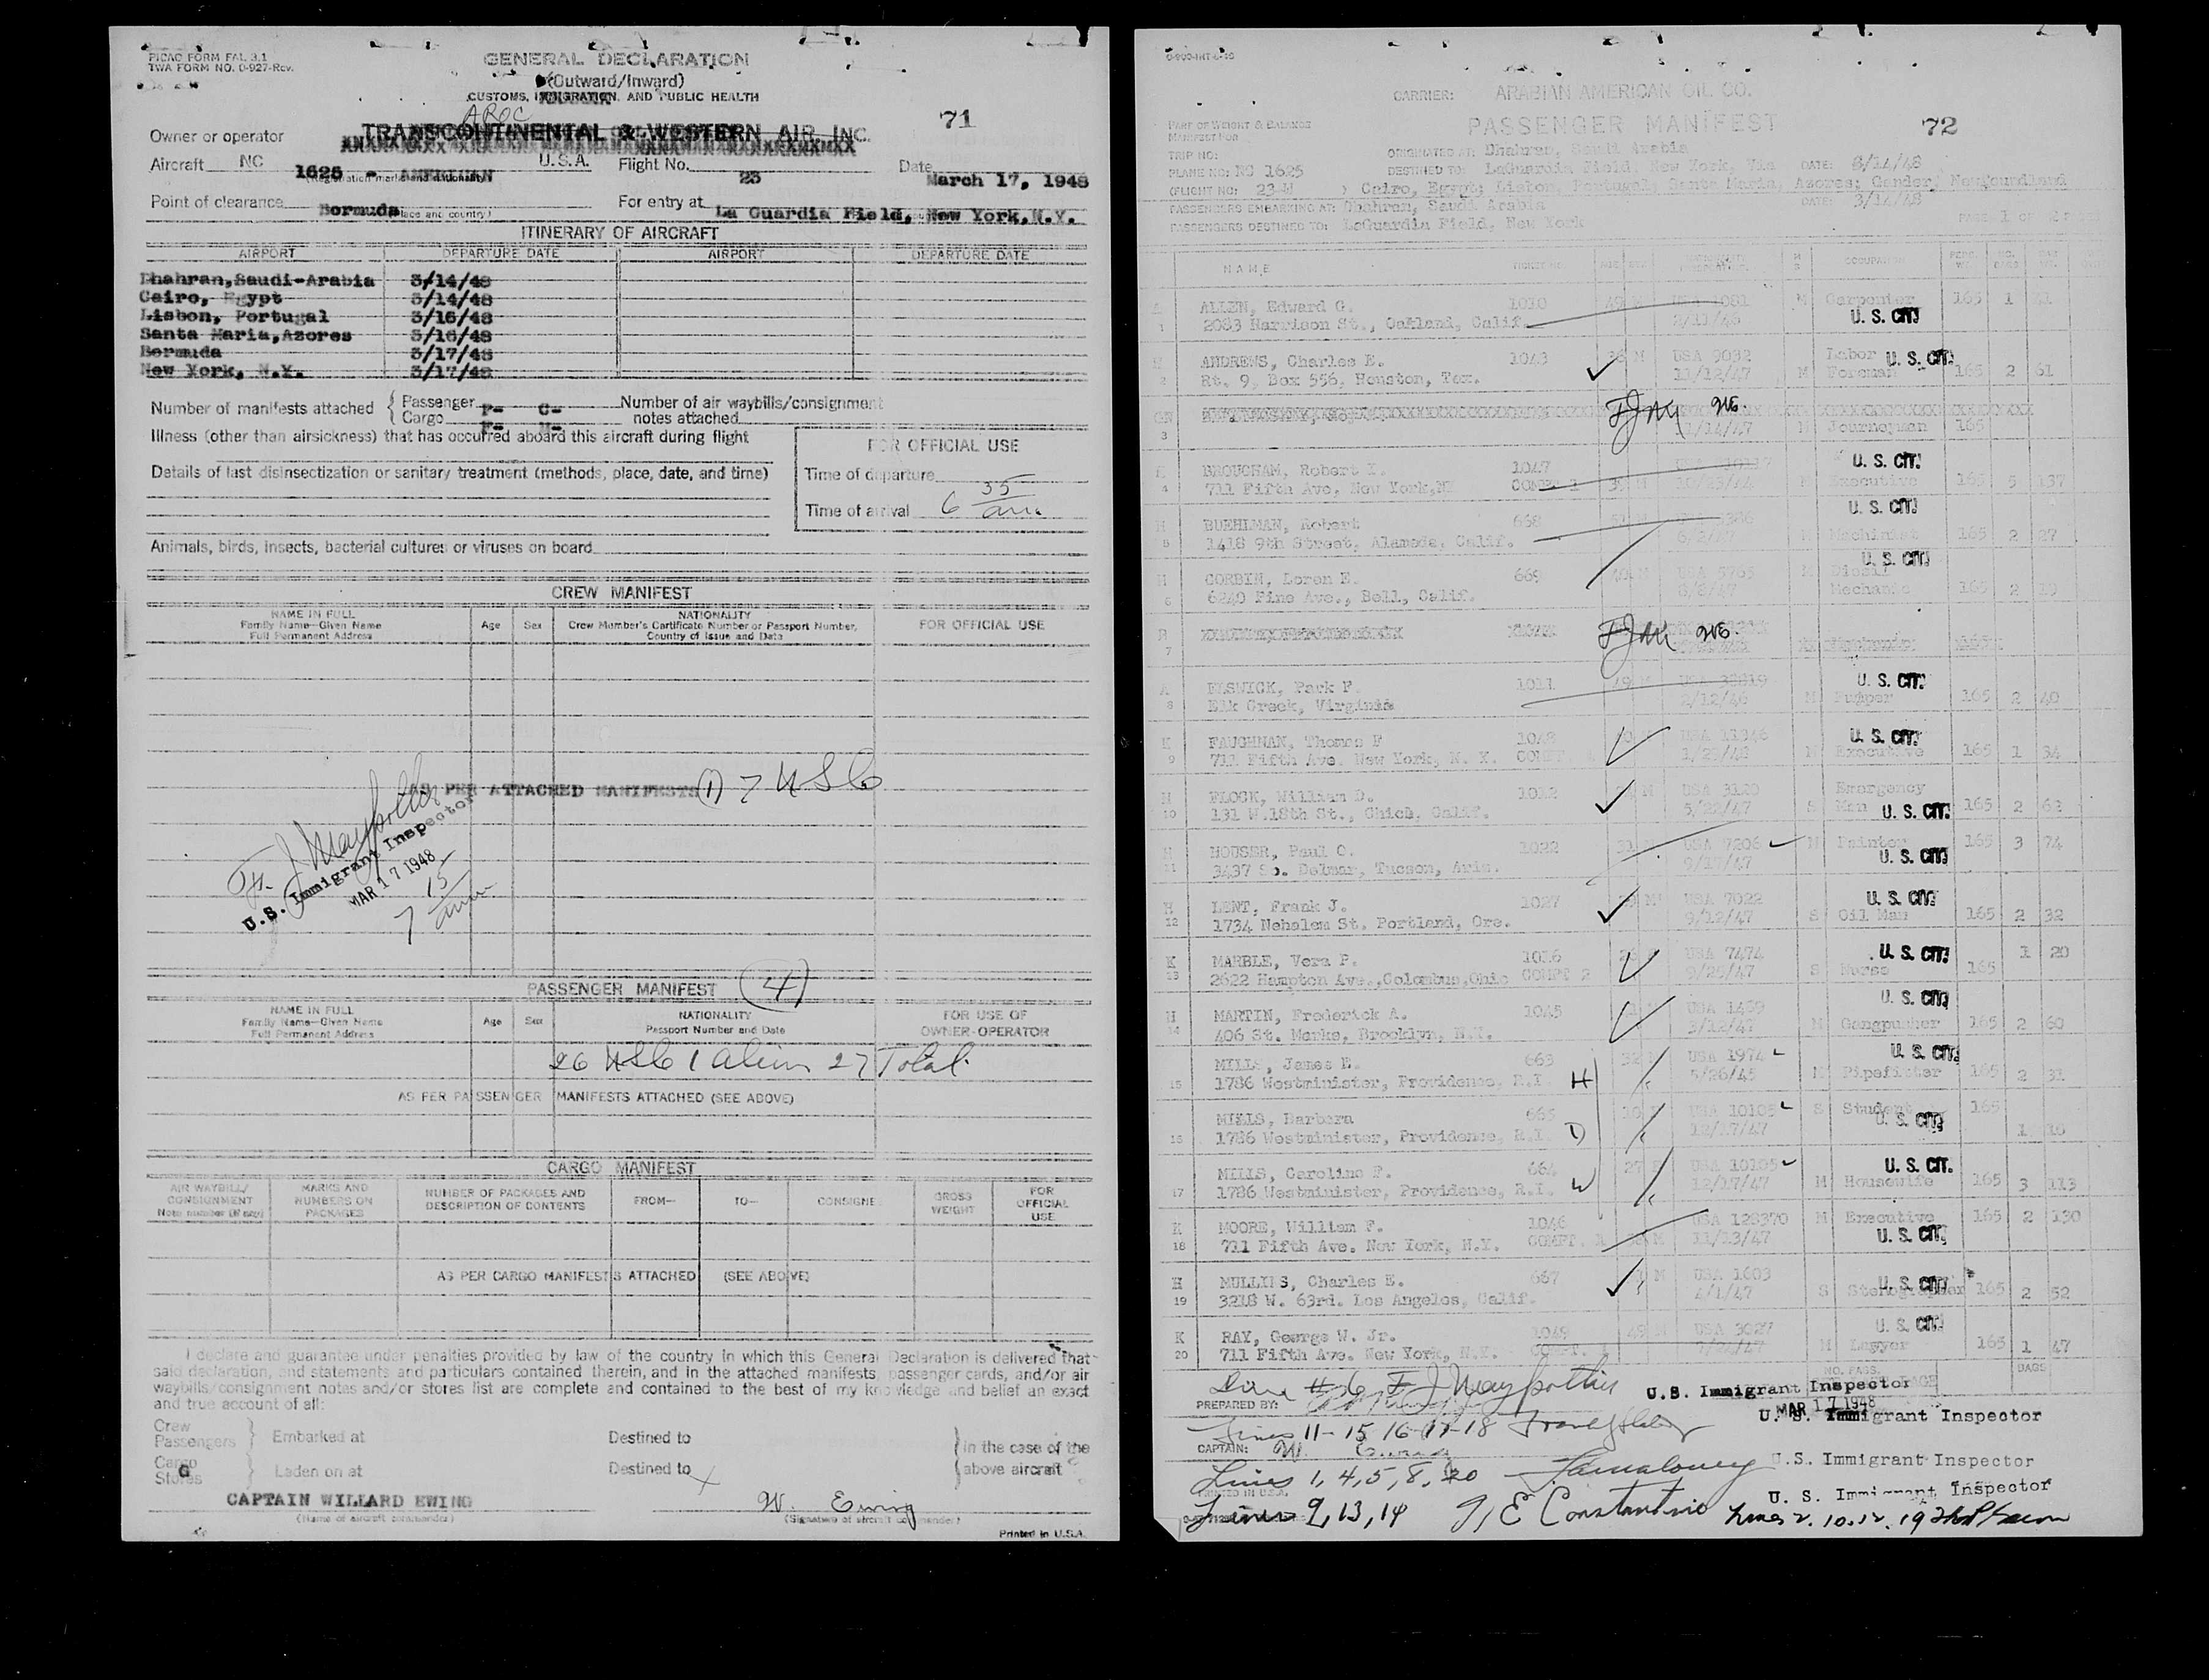 PICAO FORM FAL 3.1
TWA FORM NO. 0-927-Rev.
GENERAL DECLARATION
(Outward/Inward)
CUSTOMS, IMMIGRATION, AND PUBLIC HEALTH
AROC
71
Owner or operator TRANSCONTINENTAL & WESTERN AIR, INC.
Aircraft NC 1625 - AMERICAN U.S.A. Flight No. 23 Date March 17, 1948
(Registration marks and nationality)
Point of clearance Bermuda For entry at La Guardia Field, New York, N.Y.
(Place and country)
ITINERARY OF AIRCRAFT
AIRPORT DEPARTURE DATE AIRPORT DEPARTURE DATE
Dhahran, Saudi-Arabia 3/14/48
Cairo, Egypt 3/14/48
Lisbon, Portugal 3/16/48
Santa Maria, Azores 3/16/48
Bermuda 3/17/48
New York, N.Y. 3/17/48
Number of manifests attached { Passenger P- C- Number of air waybills/consignment
Cargo notes attached
Illness (other than airsickness) that has occurred aboard this aircraft during flight
FOR OFFICIAL USE
Details of last disinsectization or sanitary treatment (methods, place, date, and time)
Time of departure
Time of arrival 6 35 am
Animals, birds, insects, bacterial cultures or viruses on board
CREW MANIFEST
NAME IN FULL
Family Name—Given Name
Full Permanent Address
Age Sex
NATIONALITY
Crew Member's Certificate Number or Passport Number,
Country of Issue and Date
FOR OFFICIAL USE
AS PER ATTACHED MANIFESTS (1) 7 USC
F. J. Maypother
U.S. Immigrant Inspector
MAR 17 1948
7 15 am
PASSENGER MANIFEST (4)
NAME IN FULL
Family Name—Given Name
Full Permanent Address
Age Sex
NATIONALITY
Passport Number and Date
FOR USE OF
OWNER-OPERATOR
26 USC 1 alien 27 Total
AS PER PASSENGER MANIFESTS ATTACHED (SEE ABOVE)
CARGO MANIFEST
AIR WAYBILL/
CONSIGNMENT
Note number (if any)
MARKS AND
NUMBERS ON
PACKAGES
NUMBER OF PACKAGES AND
DESCRIPTION OF CONTENTS
FROM— TO— CONSIGNEE
GROSS
WEIGHT
FOR
OFFICIAL
USE
AS PER CARGO MANIFESTS ATTACHED (SEE ABOVE)
I declare and guarantee under penalties provided by law of the country in which this General Declaration is delivered that
said declaration, and statements and particulars contained therein, and in the attached manifests, passenger cards, and/or air
waybills/consignment notes and/or stores list are complete and contained to the best of my knowledge and belief an exact
and true account of all:
Crew
Passengers } Embarked at Destined to } in the case of the
Cargo
Stores } Laden on at Destined to } above aircraft
CAPTAIN WILLARD EWING
(Name of aircraft commander)
W. Ewing
(Signature of aircraft commander)
Printed in U.S.A.
CARRIER: ARABIAN AMERICAN OIL CO.
PART OF WEIGHT & BALANCE
MANIFEST FOR
PASSENGER MANIFEST
72
TRIP NO: ORIGINATED AT: Dhahran, Saudi Arabia
PLANE NO: NC 1625 DESTINED TO: LaGuardia Field, New York, Via DATE: 3/14/48
(FLIGHT NO: 23 ) Cairo, Egypt; Lisbon, Portugal; Santa Maria, Azores; Gander, Newfoundland
PASSENGERS EMBARKING AT: Dhahran, Saudi Arabia DATE: 3/14/48
PASSENGERS DESTINED TO: LaGuardia Field, New York PAGE 1 OF 2
NAME TICKET NO. AGE SEX OCCUPATION
1 ALLEN, Edward G. 1010 49 M USA 1081 M Carpenter 165 1
2083 Harrison St., Oakland, Calif. 2/11/46 U. S. CIT.
H ANDREWS, Charles E. 1043 M USA 9032 Labor U. S. CIT.
2 Rt. 9, Box 556, Houston, Tex. 11/12/47 M Foreman 165 2 61
FJM
3 11/14/47 M Journeyman 165
BROUGHAM, Robert I. 1047 U. S. CIT.
4 711 Fifth Ave, New York, NY COMPT 1 M Executive 165 5 137
H BUEHLMAN, Robert 668 U. S. CIT.
5 1418 9th Street, Alameda, Calif. 6/2/47 M Machinist 165 2 27
H CORBIN, Loren E. 669 M USA 5765 M Diesel U. S. CIT.
6 6240 Pine Ave., Bell, Calif. Mechanic 165 2
7 FJM
FESWICK, Park F. 1011 49 M U. S. CIT.
8 Elk Creek, Virginia 2/12/46 M Pumper 165 2 40
K FAUGHNAN, Thomas F 1048 USA 11346 U. S. CIT.
9 711 Fifth Ave. New York, N. Y. COMPT. 1/29/48 M Executive 165 1 34
H FLOCK, William D. 1012 M USA 3120 Emergency
10 131 W.18th St., Chico, Calif. 5/22/47 S Man U. S. CIT. 165 2 62
H HOUSER, Paul O. 1022 31 USA 7206 M Painter 165 3 74
11 3437 So. Delmar, Tucson, Ariz. 9/17/47 U. S. CIT.
H LENT, Frank J. 1027 M USA 7022 U. S. CIT.
12 1734 Nehalem St. Portland, Ore. 9/12/47 S Oil Man 165 2 32
K MARBLE, Vera P. 1016 USA 7474 U. S. CIT. 1 20
13 2622 Hampton Ave., Columbus, Ohio COMPT 2 9/25/47 S Nurse 165
H MARTIN, Frederick A. 1045 USA 1469 U. S. CIT.
14 406 St. Marks, Brooklyn, N.Y. M Gangpusher 165 2 60
MILLS, James E. 663 32 USA 1974 U. S. CIT.
15 1786 Westminister, Providence, R.I. H 5/26/45 M Pipefitter 165 2 31
MILLS, Barbara 665 10 USA 10105 S Student 165
16 1786 Westminister, Providence, R.I. D 12/17/47 U. S. CIT. 1 10
MILLS, Caroline F. 664 27 USA 10105 U. S. CIT.
17 1786 Westminister, Providence, R.I. W 12/17/47 M Housewife 165 3 113
K MOORE, William F. 1046 USA 128370 M Executive 165 2 130
18 711 Fifth Ave. New York, N.Y. COMPT. M 11/13/47 U. S. CIT.
H MULLINS, Charles E. 667 M USA 1603 U. S. CIT.
19 3218 W. 63rd. Los Angeles, Calif. 4/1/47 S Stenographer 165 2 52
K RAY, George W. Jr. 1049 49 M USA 3027 U. S. CIT.
20 711 Fifth Ave. New York, N.Y. COMPT. M Lawyer 165 1 47
NO. PASS. BAGS
Line # 6 F J Maypother U.S. Immigrant Inspector
PREPARED BY: MAR 17 1948
Lines 11-15-16-17-18 U. S. Immigrant Inspector
CAPTAIN: W. Ewing
Lines 1, 4, 5, 8, 20 U.S. Immigrant Inspector
PRINTED IN U.S.A. U. S. Immigrant Inspector
Lines 9, 13, 14 E Constantino Lines 2. 10. 12. 19